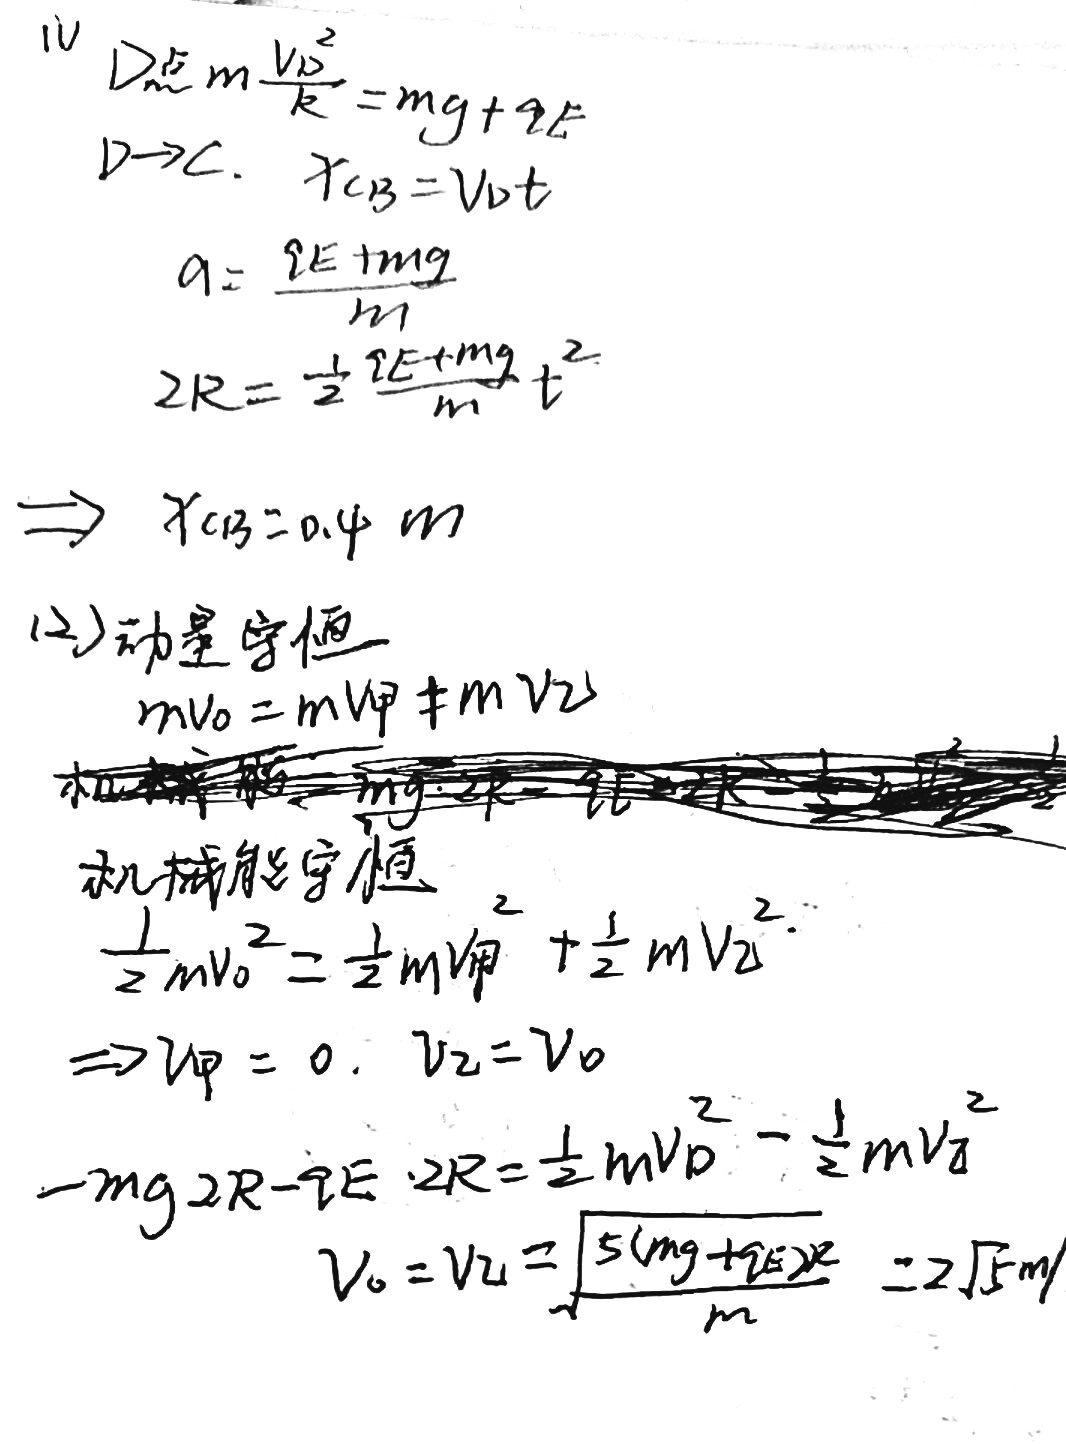 (1)
D点 m V_D²/R = mg + qE
D→C. x_CB = V_D t
a = (qE + mg)/m
2R = 1/2 (qE + mg)/m t²
⇒ x_CB = 0.4 m
(2) 动量守恒
mV₀ = mV甲 + mV乙
机械能守恒
1/2 mV₀² = 1/2 mV甲² + 1/2 mV乙².
⇒ V甲 = 0. V乙 = V₀
-mg2R - qE·2R = 1/2 mV_D² - 1/2 mV乙²
V₀ = V乙 = √(5(mg+qE)R/m) = 2√5 m/